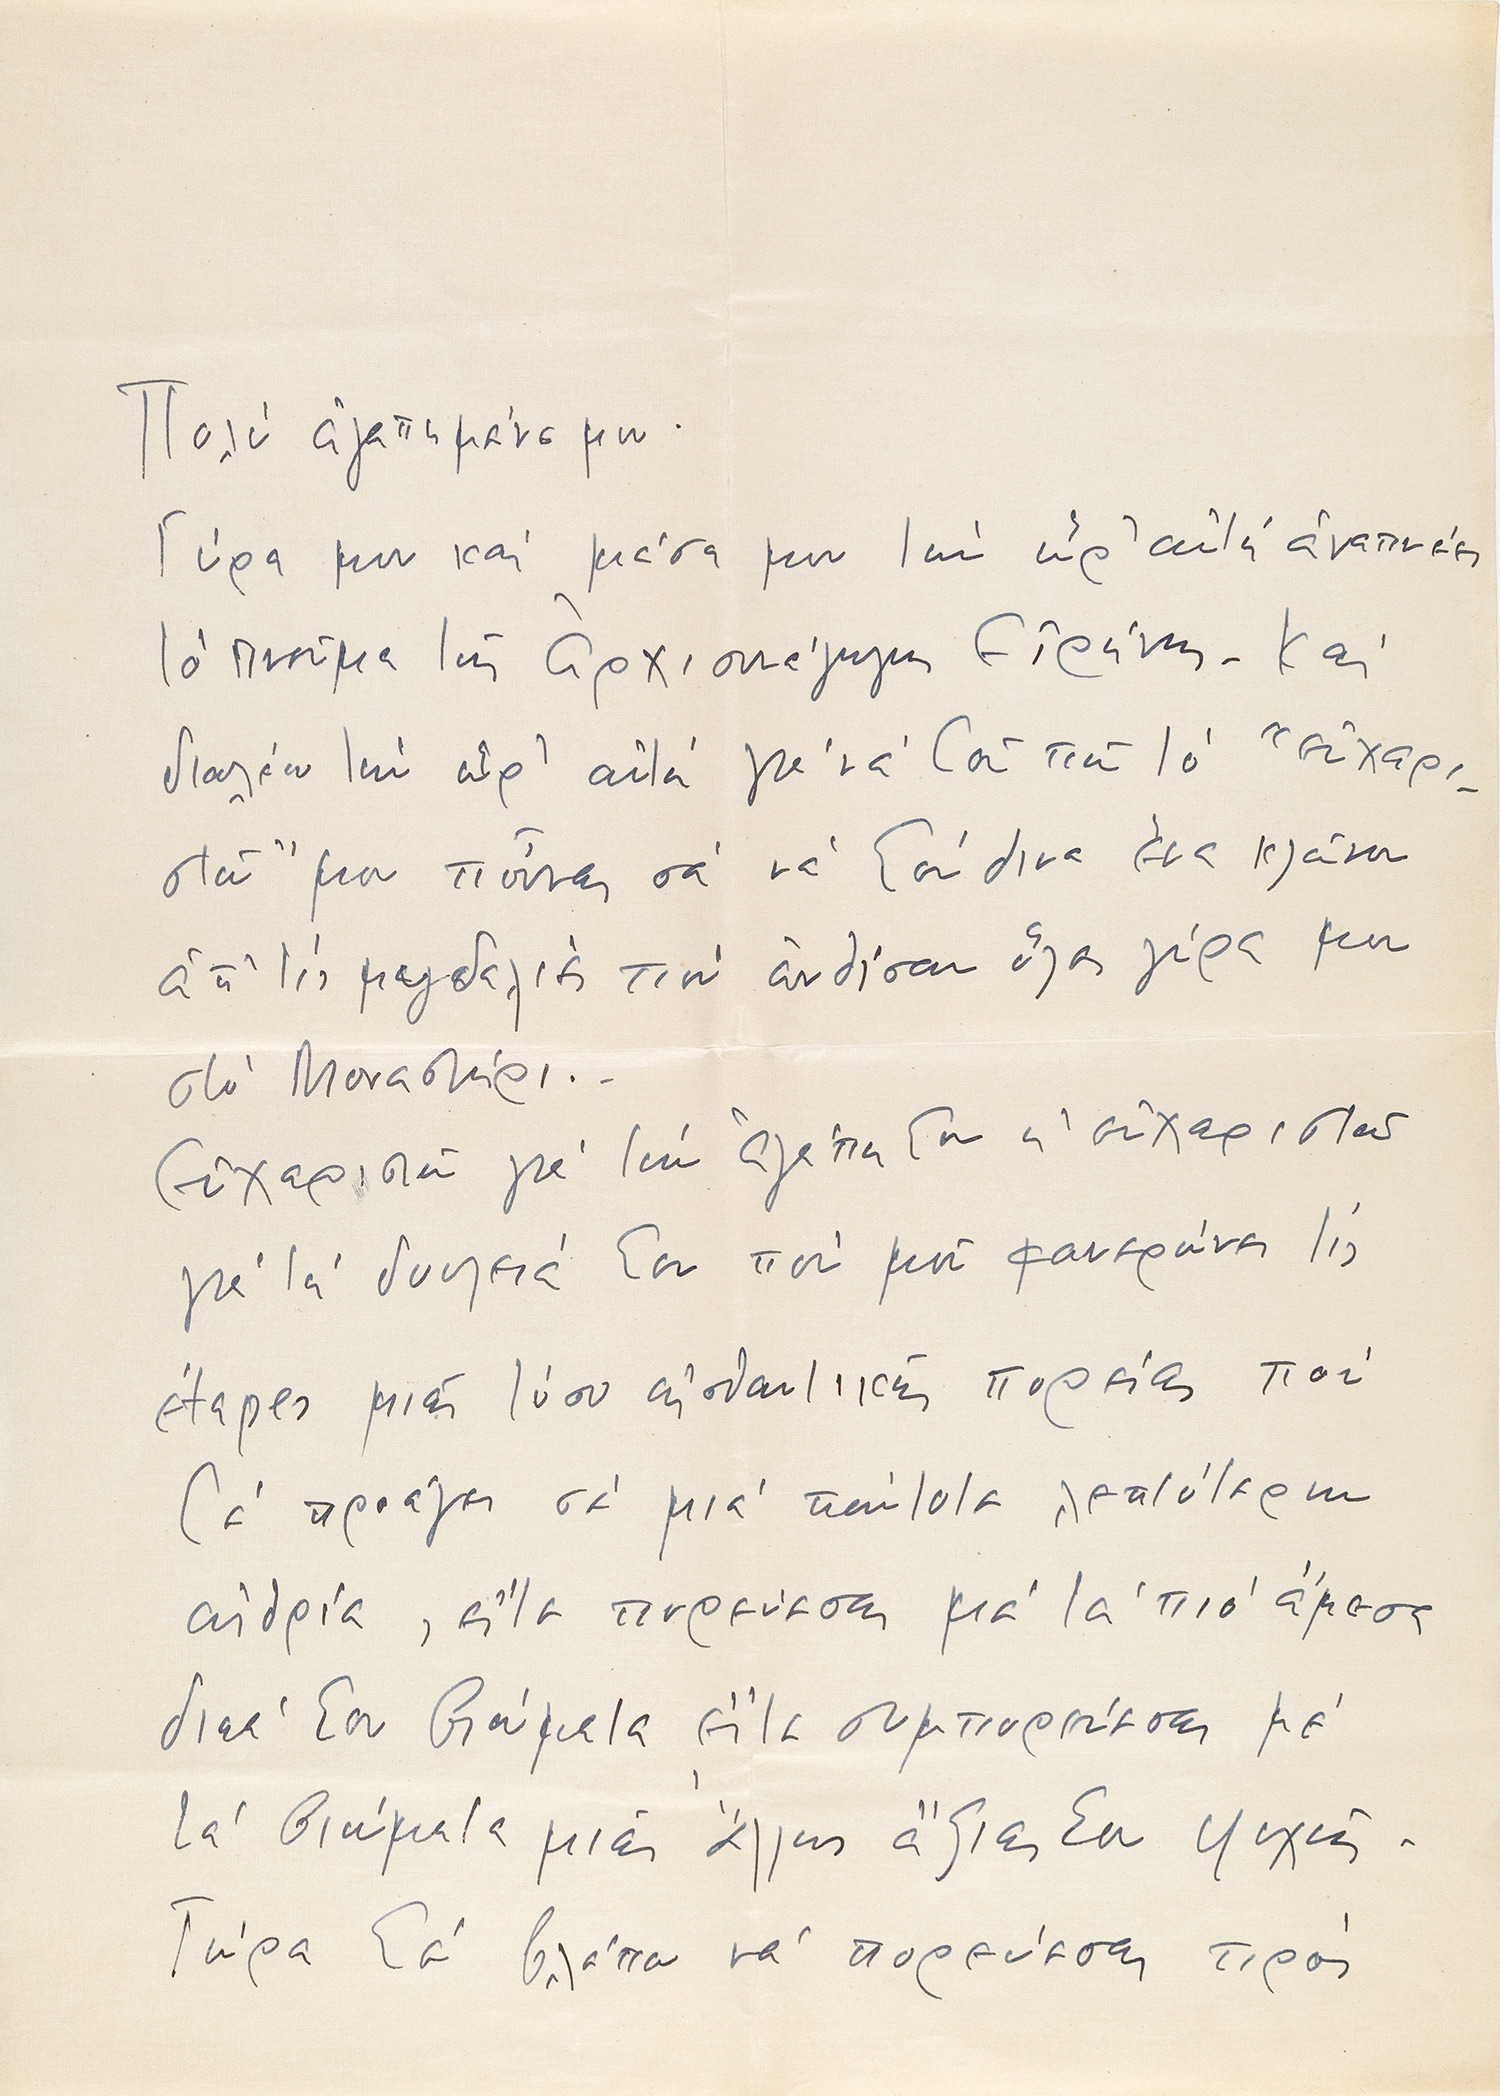 Πολύ ἀγαπημένε μου.
Γύρα μου καί μέσα μου τήν ὥρ' αὐτή ἀναπνέει
τό πνεῦμα τῆς Ἀρχισυνάγωγης Εἰρήνης - Καί
διαλέω τήν ὥρ' αὐτή γιά νά Σοῦ πῶ τό "εὐχαρι-
στῶ" μου ποὖναι σά νά Σοὔδινα ἕνα κλῶνο
ἀπ' τίς μυγδαλιές πού ἀνθίσαν ὅλες γύρα μου
στό Μοναστήρι. -
Εὐχαριστῶ γιά τήν ἀγάπη Σου κι' εὐχαριστῶ
γιά τή δουλειά Σου πού μοῦ φανερώνει τίς
ἔταπες μιᾶς τόσο αἰσθαντικῆς πορείας πού
Σέ προάγει σέ μιά πάντοτε λεπτότερην
αἰθρία, εἴτε πορεύεσαι μέ τά πιό ἄμεσα
δικά Σου βιώματα εἴτε συμπορεύεσαι μέ
τά βιώματα μιᾶς ἄλλης ἄξιας Σου ψυχῆς -
Τώρα Σέ βλέπω νά πορεύεσαι πρός